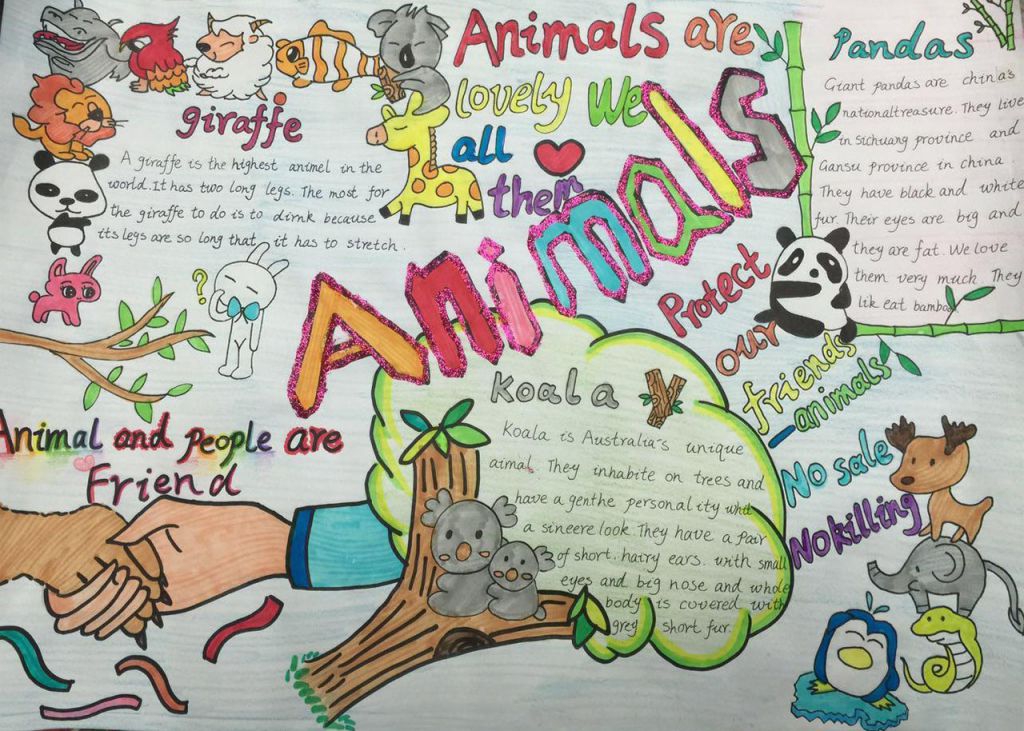 Animals are
lovely We
all
them
giraffe
A giraffe is the highest animel in the
world. It has two long legs. The most for
the giraffe to do is to dirnk because
its legs are so long that it has to stretch.
?
Animals
Pandas
Giant pandas are china's
nationaltreasure. They live
in sichuang province and
Gansu province in china.
They have black and white
fur. Their eyes are big and
they are fat. We love
them very much. They
lik eat bamboo.
Protect
our
friends
—animals
No sale
No killing
Koala
Koala is Australia's unique
aimal. They inhabite on trees and
have a genthe personality whit
a sineere look. They have a pair
of short. hairy ears. with small
eyes and big nose and whole
body is covered with
grey short fur.
Animal and people are
Friend